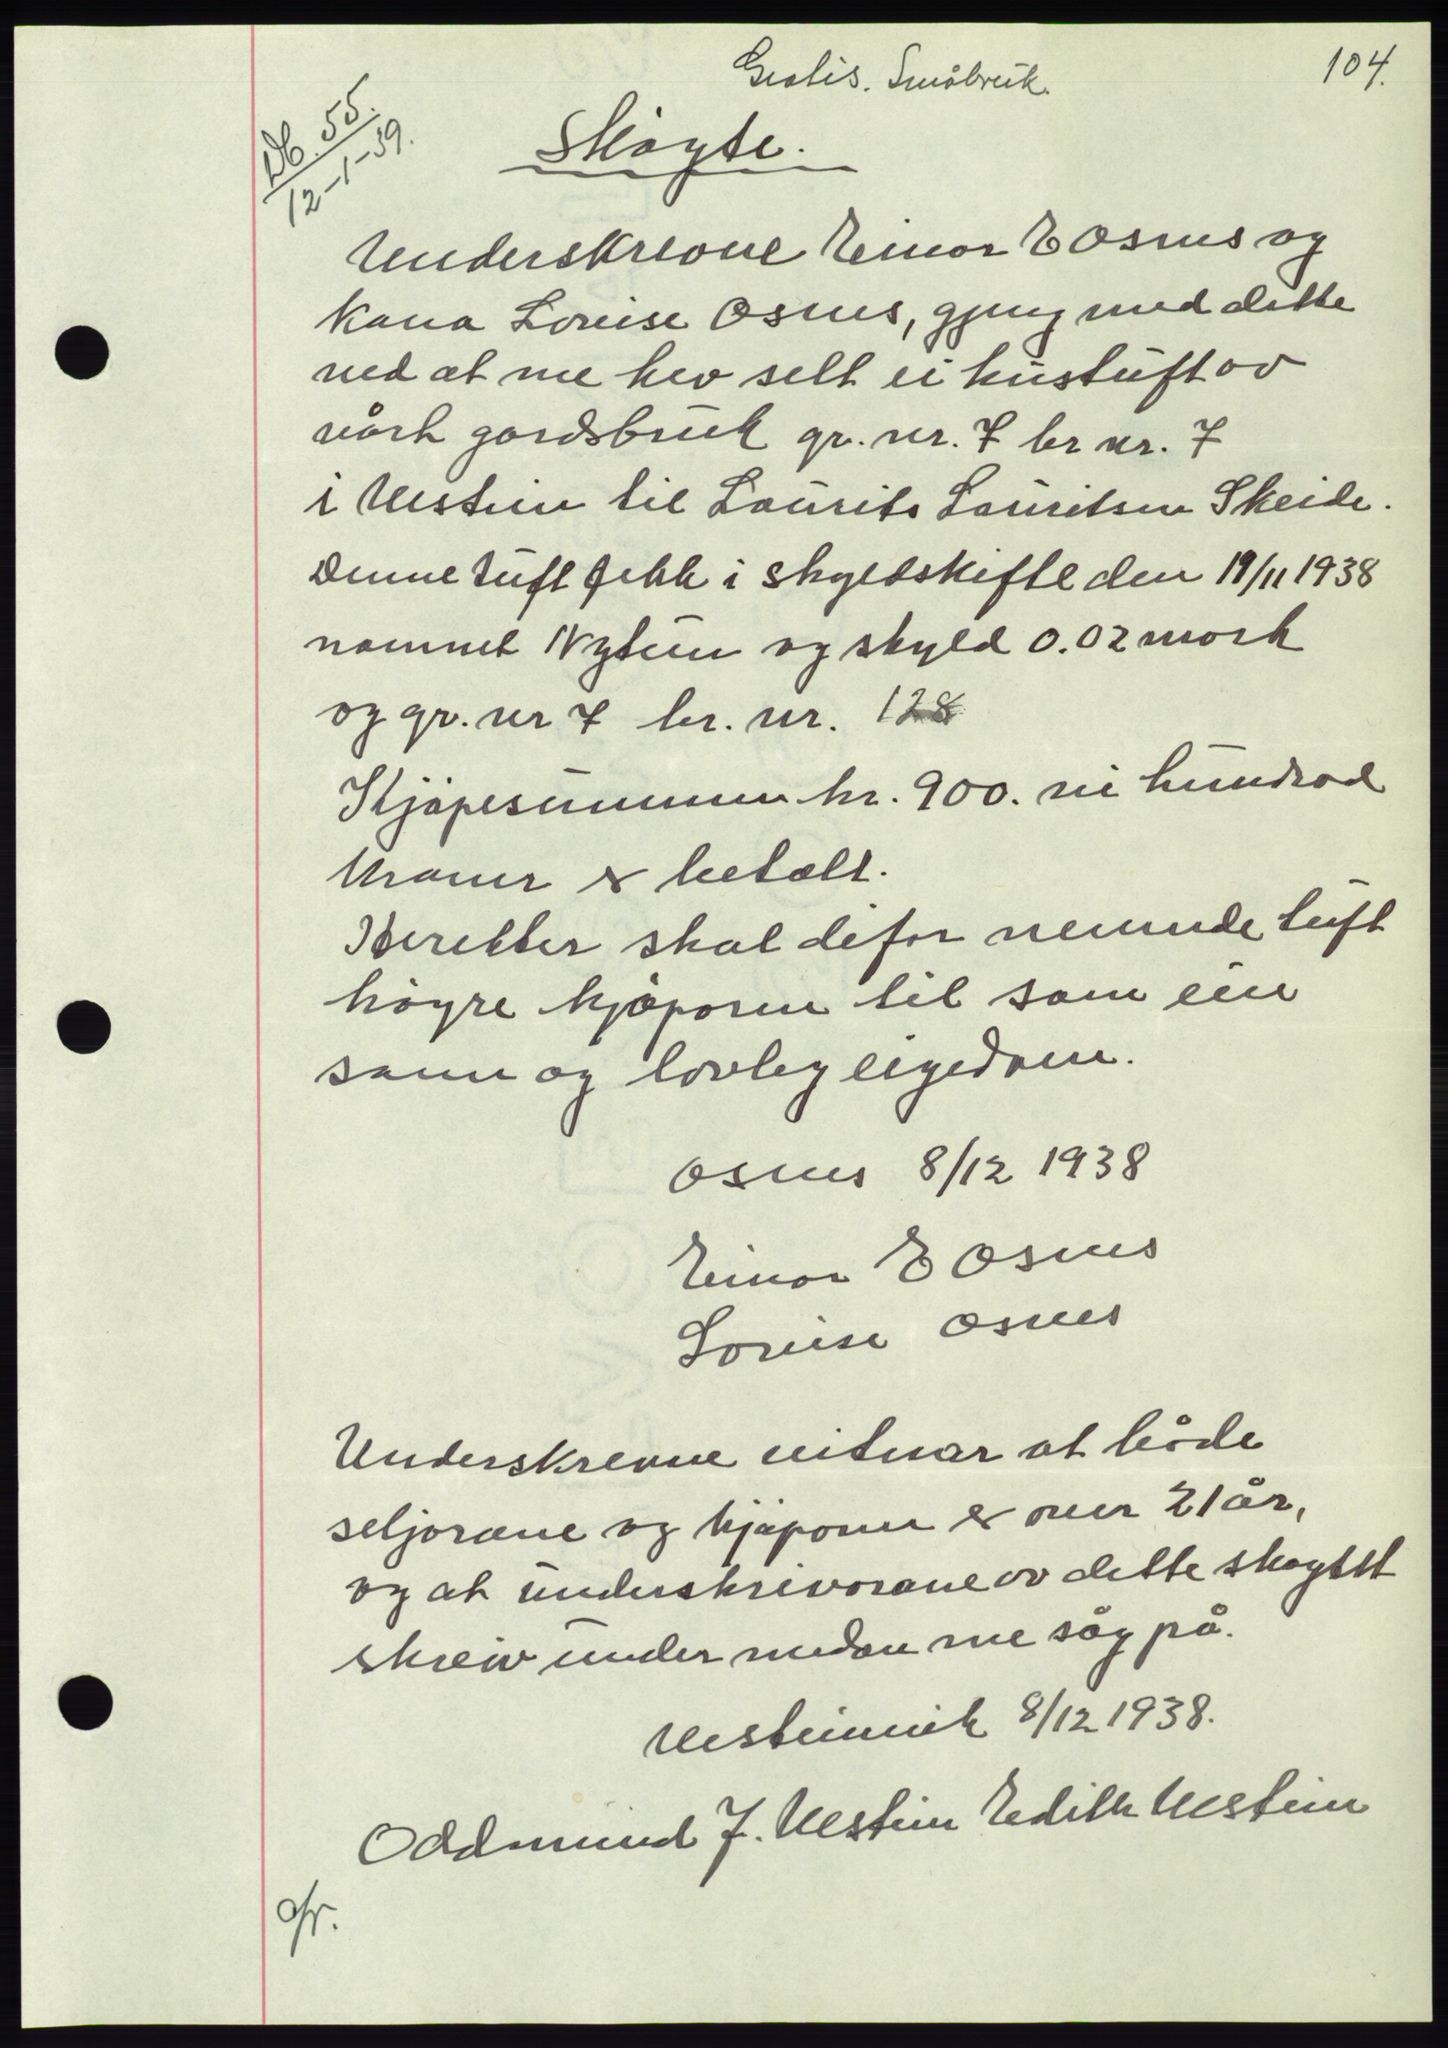 Gratis. Småbruk.
104.
Db. 55.
12-1-39.
Skøyte.
Underskrevne Einar E Osnes og
kona Lovise Osnes, gjeng med dette
ved at me hev selt ei hustuft av
vårt gardsbruk gr. nr. 7 br nr. 7
i Ulstein til Laurits Lauritsen Skeide.
Denne tuft fekk i skyldskifte den 19/11 1938
namnet Nytun og skyld 0.02 mark
og gr. nr 7 br. nr. 128
Kjøpesummen kr. 900. ni hundrad
kroner er betalt.
Heretter skal difor nemnde tuft
høyre kjøparen til som ein
sann og lovleg eigedom.
Osnes 8/12 1938
Einar E Osnes
Lovise Osnes
Underskrevne vitnar at både
seljarane og kjøparen er over 21 år,
og at underskrivarane av dette skøytet
skreiv under medan me såg på.
Ulsteinvik 8/12 1938.
Oddmund J. Ulstein Edith Ulstein